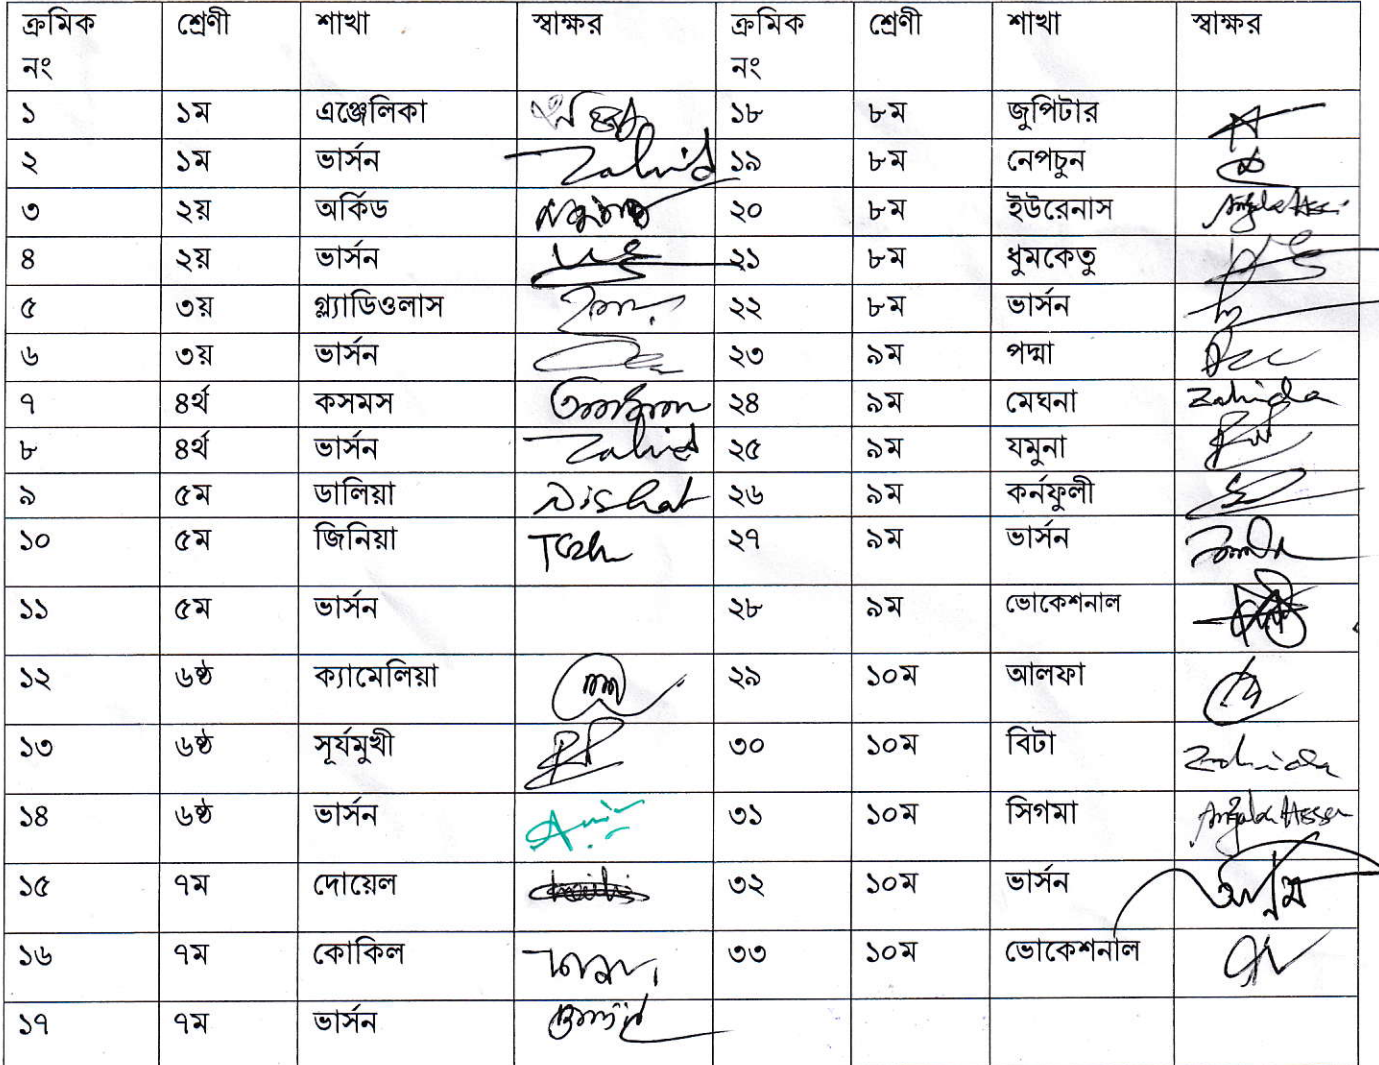 ক্রমিক নং শ্রেণী শাখা স্বাক্ষর ক্রমিক নং শ্রেণী শাখা স্বাক্ষর
১ ১ম এঞ্জেলিকা ১৮ ৮ম জুপিটার
২ ১ম ভার্সন Zahid ১৯ ৮ম নেপচুন
৩ ২য় অর্কিড ২০ ৮ম ইউরেনাস
৪ ২য় ভার্সন ২১ ৮ম ধুমকেতু
৫ ৩য় গ্ল্যাডিওলাস ২২ ৮ম ভার্সন
৬ ৩য় ভার্সন ২৩ ৯ম পদ্মা
৭ ৪র্থ কসমস ২৪ ৯ম মেঘনা Zahida
৮ ৪র্থ ভার্সন Zahid ২৫ ৯ম যমুনা
৯ ৫ম ডালিয়া Nishat ২৬ ৯ম কর্নফুলী
১০ ৫ম জিনিয়া ২৭ ৯ম ভার্সন
১১ ৫ম ভার্সন ২৮ ৯ম ভোকেশনাল
১২ ৬ষ্ঠ ক্যামেলিয়া ২৯ ১০ম আলফা
১৩ ৬ষ্ঠ সূর্যমুখী ৩০ ১০ম বিটা Zahida
১৪ ৬ষ্ঠ ভার্সন ৩১ ১০ম সিগমা
১৫ ৭ম দোয়েল ৩২ ১০ম ভার্সন
১৬ ৭ম কোকিল ৩৩ ১০ম ভোকেশনাল
১৭ ৭ম ভার্সন